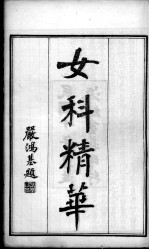 女科精華
嚴鴻基題